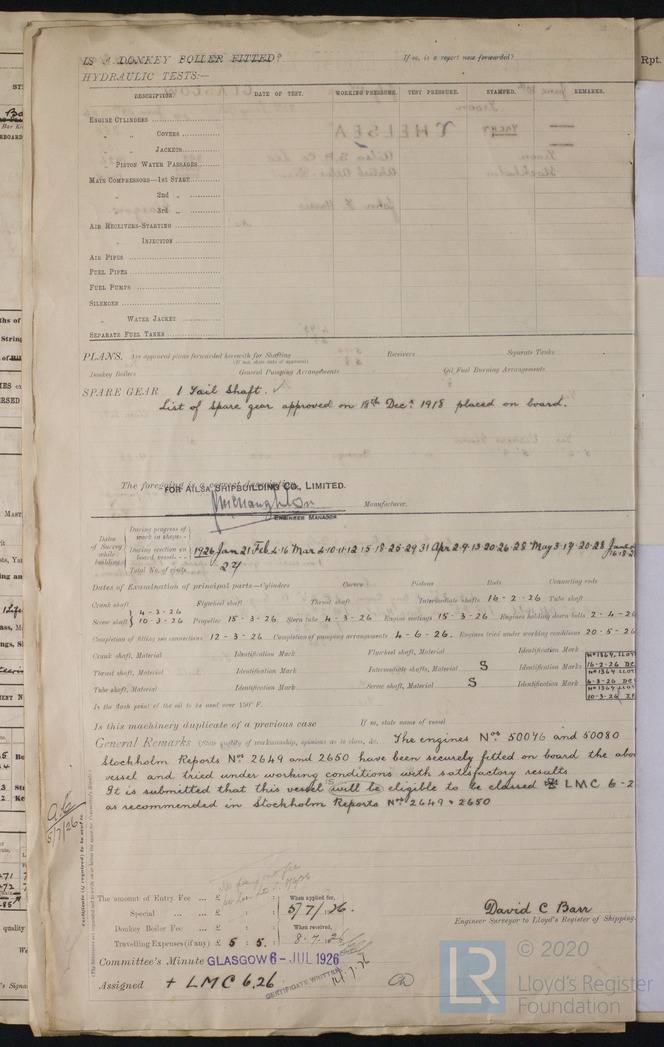 IS A DONKEY BOILER FITTED? If so, is a report now forwarded?
HYDRAULIC TESTS:—
DESCRIPTION. DATE OF TEST. WORKING PRESSURE. TEST PRESSURE. STAMPED. REMARKS.
ENGINE CYLINDERS
" " COVERS
" " JACKETS
" PISTON WATER PASSAGES
MAIN COMPRESSORS—1ST STAGE
" 2ND "
" 3RD "
AIR RECEIVERS—STARTING
" INJECTION
AIR PIPES
FUEL PIPES
FUEL PUMPS
SILENCER
" WATER JACKET
SEPARATE FUEL TANKS
PLANS. Are approved plans forwarded herewith for Shafting Receivers Separate Tanks
(If not, state date of approval)
Donkey Boilers General Pumping Arrangements Oil Fuel Burning Arrangements
SPARE GEAR 1 Tail Shaft.
List of Spare gear approved on 18th Decr 1918 placed on board.
The foregoing is a correct description
FOR AILSA SHIPBUILDING CO., LIMITED.
Manufacturer.
ENGINEER MANAGER
Dates of Survey while building
During progress of work in shops--
During erection on board vessel---
1926 Jan 21 Feb 4·16 Mar 4·10·11·12·15·18·25·29·31 Apr 2·9·13·20·26·28 May 3·19·20·28 June
Total No. of visits 27
Dates of Examination of principal parts—Cylinders Covers Pistons Rods Connecting rods
Crank shaft Flywheel shaft Thrust shaft Intermediate shafts 16-2-26 Tube shaft
Screw shaft 4-3-26 10-3-26 Propeller 15-3-26 Stern tube 4-3-26 Engine seatings 15-3-26 Engines holding down bolts 2-4-26
Completion of fitting sea connections 12-3-26 Completion of pumping arrangements 4-6-26. Engines tried under working conditions 20-5-26
Crank shaft, Material Identification Mark Flywheel shaft, Material Identification Mark
Thrust shaft, Material Identification Mark Intermediate shafts, Material S Identification Marks
Tube shaft, Material Identification Mark Screw shaft, Material S Identification Mark
No 1364 LLOY
16-2-26 DC
No 1364 LLOY
No 1364 LLOY
10-3-26
Is the flash point of the oil to be used over 150° F.
Is this machinery duplicate of a previous case If so, state name of vessel
General Remarks (State quality of workmanship, opinions as to class, &c. The engines Nos 50076 and 50080
Stockholm Reports Nos 2649 and 2650 have been securely fitted on board the abo
vessel and tried under working conditions with satisfactory results
It is submitted that this vessel will be eligible to be classed LMC 6-2
IS
as recommended in Stockholm Reports Nos 2649 & 2650
5/7/26
The amount of Entry Fee ... £ : : When applied for,
Special ... ... £ : : 5/7/26.
Donkey Boiler Fee ... £ : : When received,
Travelling Expenses (if any) £ 5 : 5 : 8.7.26
David C Barr
Engineer Surveyor to Lloyd's Register of Shipping.
Committee's Minute GLASGOW 6- JUL 1926
Assigned + LMC 6,26.
CERTIFICATE WRITTEN
© 2020
LR
Lloyd's Register
Foundation
Rpt.